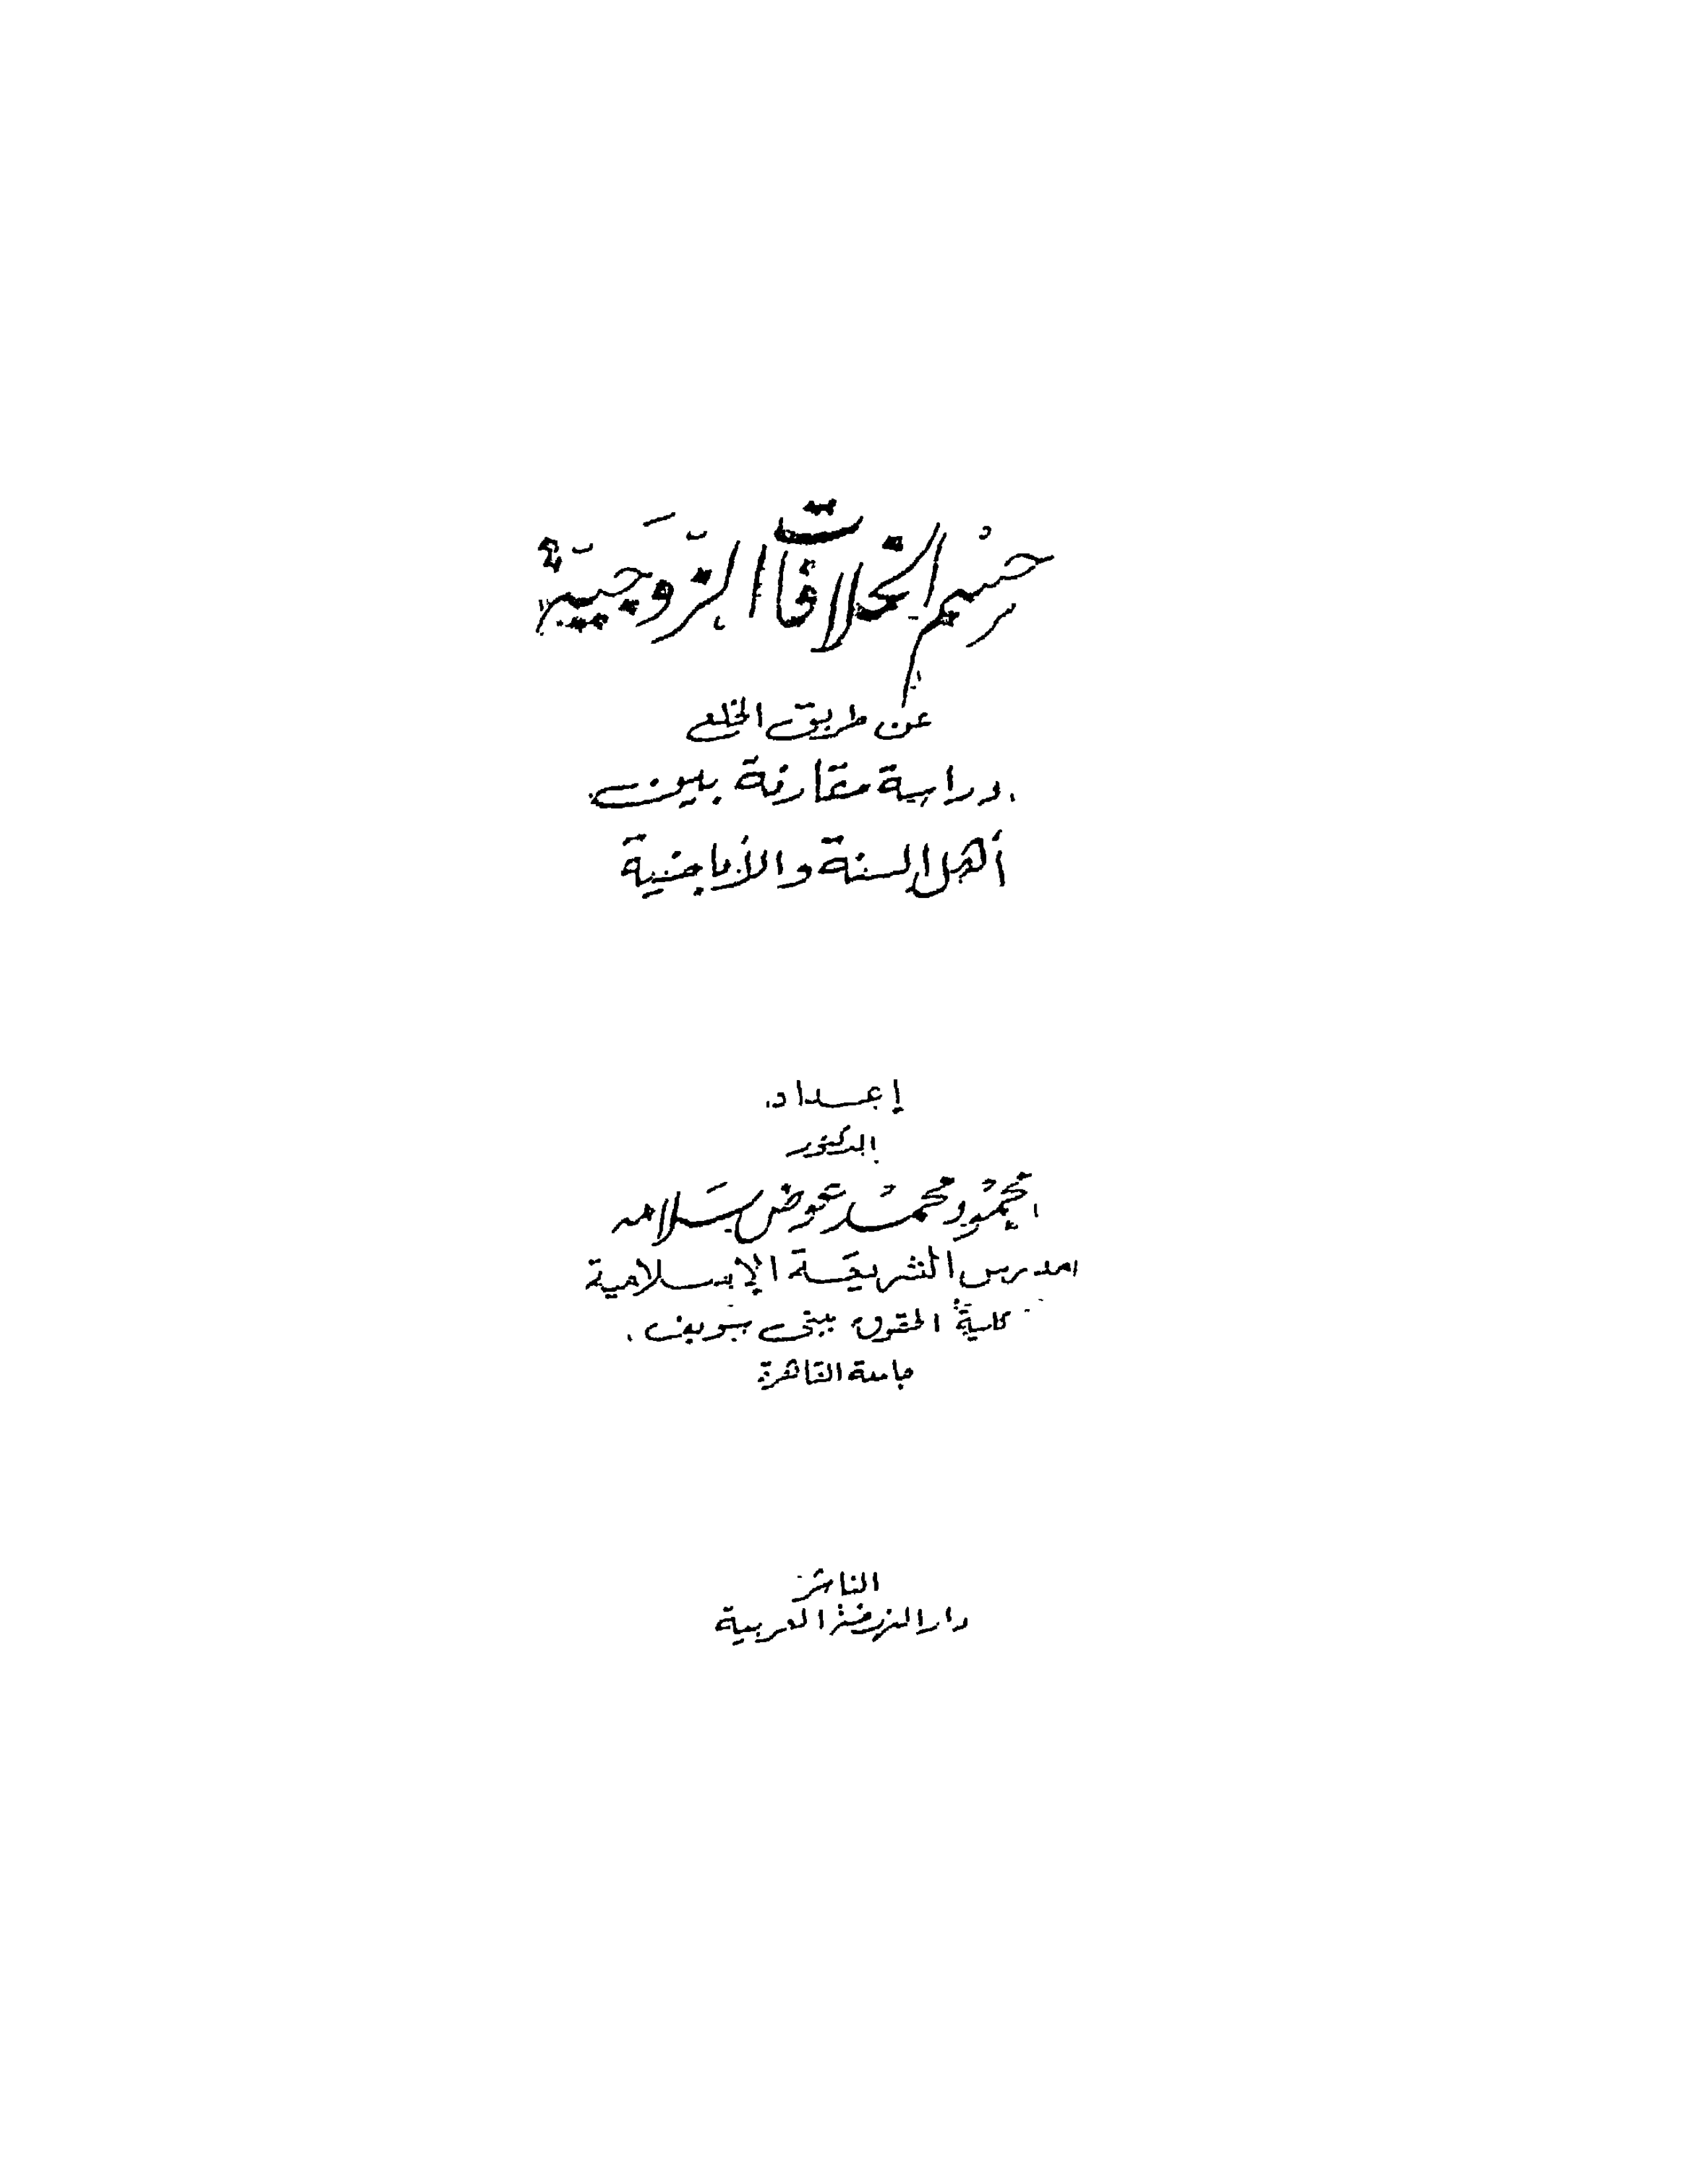 حسم الخلافات الزوجية
عن طريق الخلع
دراسة مقارنة بين
أهل السنة والأباضية
إعداد
الدكتور
محمود محمد عوض سلامه
مدرس الشريعة الإسلامية
كلية الحقوق ببنى سويف
جامعة القاهرة
الناشر
دار النهضة العربية